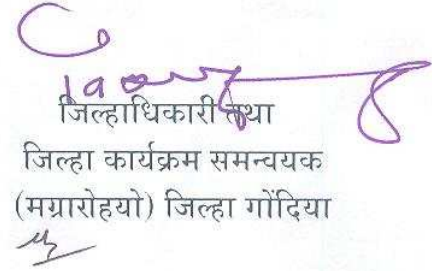 जिल्हाधिकारी तथा
जिल्हा कार्यक्रम समन्वयक
(मग्रारोहयो) जिल्हा गोंदिया